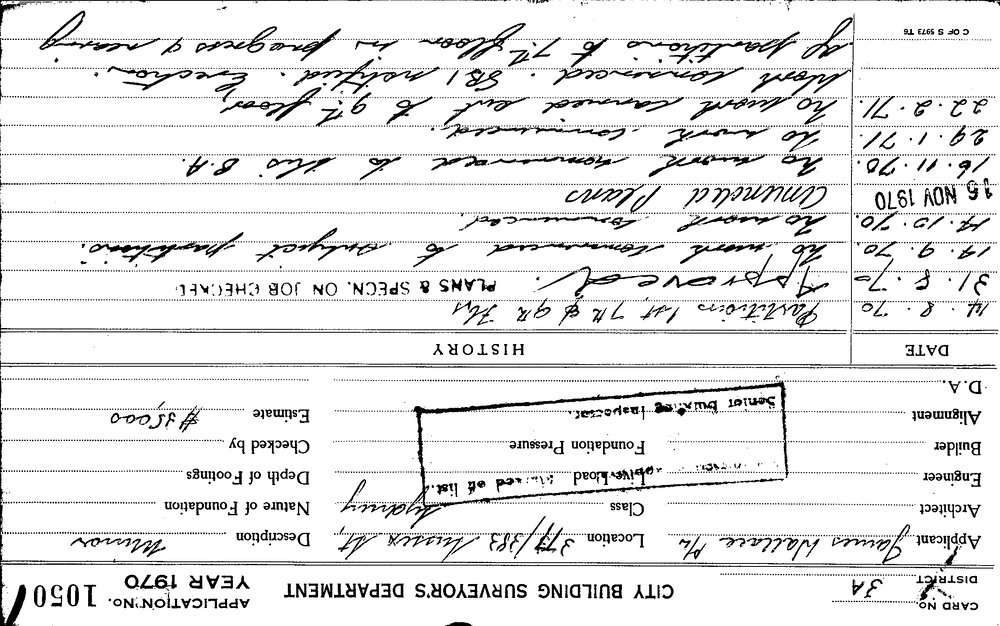 CARD No.
DISTRICT 3A
CITY BUILDING SURVEYOR'S DEPARTMENT
APPLICATION No. 1050
YEAR 1970
Applicant James Wallace P/L Location 377/383 Sussex St, Description Minor
Architect Class Sydney Nature of Foundation
Engineer Live Load Depth of Footings
Builder Foundation Pressure Checked by
Alignment Estimate $35,000
D.A.
Senior Building Inspector.
DATE HISTORY
14. 8. 70 Partitions 1st, 7th & 9th Flrs
31. 8. 70 Approved. PLANS & SPECN. ON JOB CHECKED
14. 9. 70. No work commenced to subject partitions.
14. 10. 70. No work commenced.
16 NOV 1970 Amended Plans
16. 11. 70. No work commenced to this B.A.
29. 1. 71. No work commenced.
22. 2. 71. No work carried out to 9th floor,
Work commenced. SBI notified. Erection
of partitions to 7th floor in progress & nearing
C OF S 5973 T6